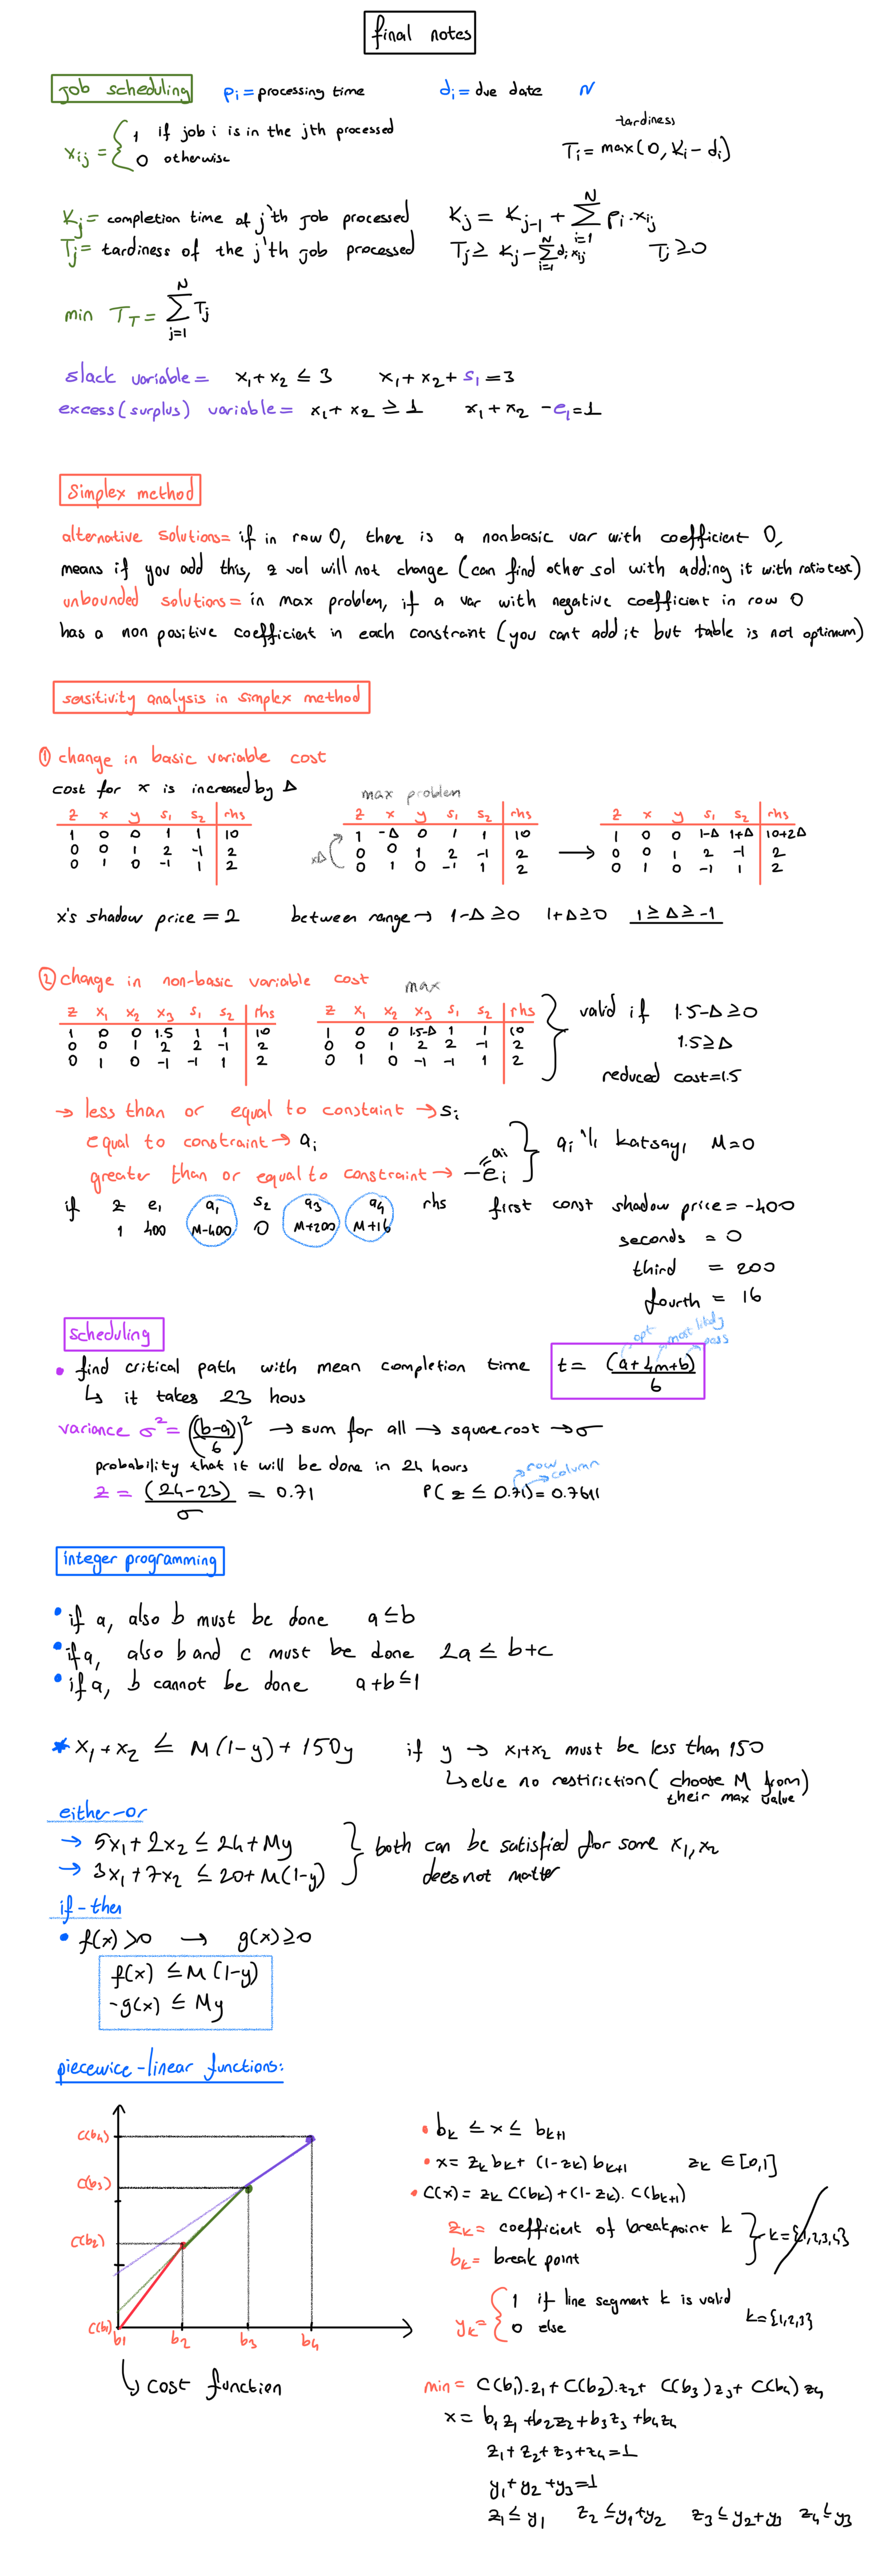 final notes
job scheduling pi = processing time di = due date N
xij = { 1 if job i is in the jth processed
0 otherwise
tardiness
Ti = max(0, Ki - di)
Kj = completion time of j'th job processed Kj = Kj-1 + Σ(i=1 to N) pi.xij
Tj = tardiness of the j'th job processed Tj ≥ Kj - Σ(i=1 to N) di xij Tj ≥ 0
min TT = Σ(j=1 to N) Tj
slack variable = x1 + x2 ≤ 3 x1 + x2 + s1 = 3
excess (surplus) variable = x1 + x2 ≥ 1 x1 + x2 - e1 = 1
Simplex method
alternative solutions = if in row 0, there is a nonbasic var with coefficient 0,
means if you add this, z val will not change (can find other sol with adding it with ratio test)
unbounded solutions = in max problem, if a var with negative coefficient in row 0
has a non positive coefficient in each constraint (you cant add it but table is not optimum)
sensitivity analysis in simplex method
① change in basic variable cost
cost for x is increased by Δ
z x y s1 s2 rhs
1 0 0 1 1 10
0 0 1 2 -1 2
0 1 0 -1 1 2
max problem
z x y s1 s2 rhs
1 -Δ 0 1 1 10
0 0 1 2 -1 2
0 1 0 -1 1 2
xΔ
→
z x y s1 s2 rhs
1 0 0 1-Δ 1+Δ 10+2Δ
0 0 1 2 -1 2
0 1 0 -1 1 2
x's shadow price = 2 between range → 1-Δ ≥ 0 1+Δ ≥ 0 1 ≥ Δ ≥ -1
② change in non-basic variable cost
z x1 x2 x3 s1 s2 rhs
1 0 0 1.5 1 1 10
0 0 1 2 2 -1 2
0 1 0 -1 -1 1 2
max
z x1 x2 x3 s1 s2 rhs
1 0 0 1.5-Δ 1 1 10
0 0 1 2 2 -1 2
0 1 0 -1 -1 1 2
} valid if 1.5-Δ ≥ 0
1.5 ≥ Δ
reduced cost = 1.5
→ less than or equal to constaint → si
equal to constraint → ai
greater than or equal to constraint → -ei ai
} ai 'li katsayı M=0
if z e1 a1 s2 a3 a4 rhs
1 400 M-400 0 M+200 M+16
first const shadow price = -400
seconds = 0
third = 200
fourth = 16
scheduling
opt most likely pess
• find critical path with mean completion time t = (a+4m+b)/6
↳ it takes 23 hous
variance σ² = ((b-a)/6)² → sum for all → squareroot → σ
probability that it will be done in 24 hours
row column
z = (24-23)/σ = 0.71 P(z ≤ 0.71) = 0.7611
integer programming
• if a, also b must be done a ≤ b
• if a, also b and c must be done 2a ≤ b+c
• if a, b cannot be done a+b ≤ 1
★ x1 + x2 ≤ M(1-y) + 150y if y → x1+x2 must be less than 150
↳ else no restiriction (choose M from their max value)
either-or
→ 5x1 + 2x2 ≤ 24 + My
→ 3x1 + 7x2 ≤ 20 + M(1-y)
} both can be satisfied for some x1, x2
does not matter
if-then
• f(x) > 0 → g(x) ≥ 0
f(x) ≤ M(1-y)
-g(x) ≤ My
piecewice-linear functions:
C(b4)
C(b3)
C(b2)
C(b1)
b1 b2 b3 b4
↳ cost function
• bk ≤ x ≤ bk+1
• x = zk bk + (1-zk) bk+1 zk ∈ [0,1]
• C(x) = zk C(bk) + (1-zk). C(bk+1)
zk = coefficient of breakpoint k
bk = break point
} k = {1,2,3,4}
yk = { 1 if line segment k is valid
0 else
k = {1,2,3}
min = C(b1).z1 + C(b2).z2 + C(b3) z3 + C(b4) z4
x = b1 z1 + b2 z2 + b3 z3 + b4 z4
z1 + z2 + z3 + z4 = 1
y1 + y2 + y3 = 1
z1 ≤ y1 z2 ≤ y1+y2 z3 ≤ y2+y3 z4 ≤ y3